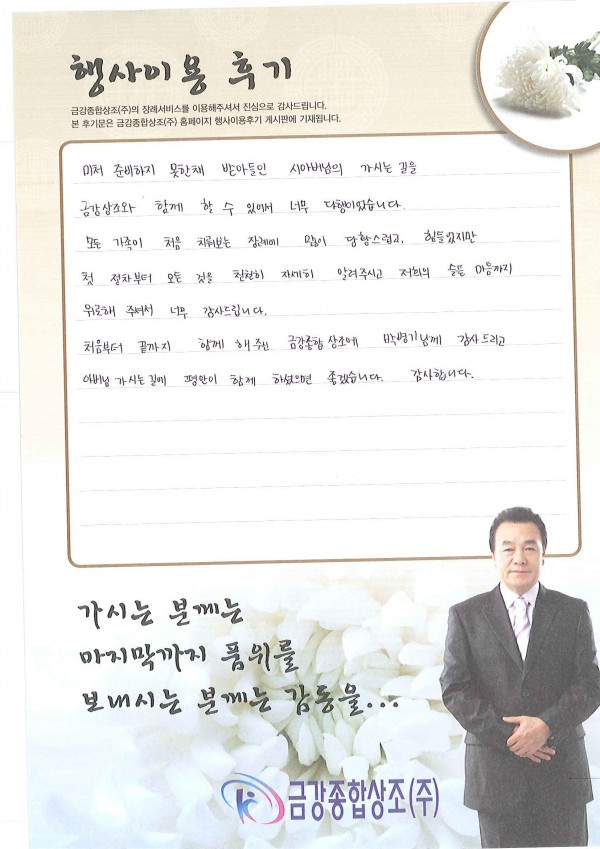 행사이용 후기
금강종합상조(주)의 장례서비스를 이용해주셔서 진심으로 감사드립니다.
본 후기문은 금강종합상조(주) 홈페이지 행사이용후기 게시판에 기재됩니다.
미처 준비하지 못한채 받아들인 시아버님의 가시는 길을
금강상조와 함께 할 수 있어서 너무 다행이었습니다.
모든 가족이 처음 치뤄보는 장례에 많이 당황스럽고, 힘들었지만
첫 절차부터 모든 것을 친절히 자세히 알려주시고 저희의 슬픈 마음까지
위로해 주셔서 너무 감사드립니다.
처음부터 끝까지 함께 해 주신 금강종합상조에 박병기님께 감사드리고
아버님 가시는길에 평안이 함께 하셨으면 좋겠습니다. 감사합니다.
가시는 분께는
마지막까지 품위를
보내시는 분께는 감동을...
금강종합상조(주)